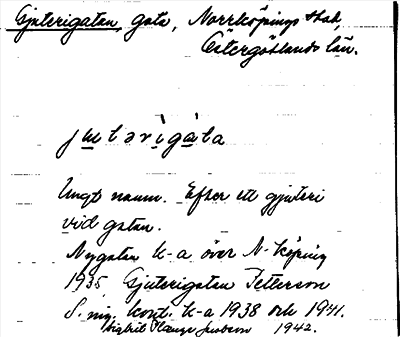 Gjuterigatan, gata, Norrköpings stad,
Östergötlands län.
jʉtərigàta
Ungt namn. Efter ett gjuteri
vid gatan.
Nygatan k-a över N-köping
1935 Gjuterigatan Petterson
S. ing. kort. k-a 1938 och 1941.
1942.